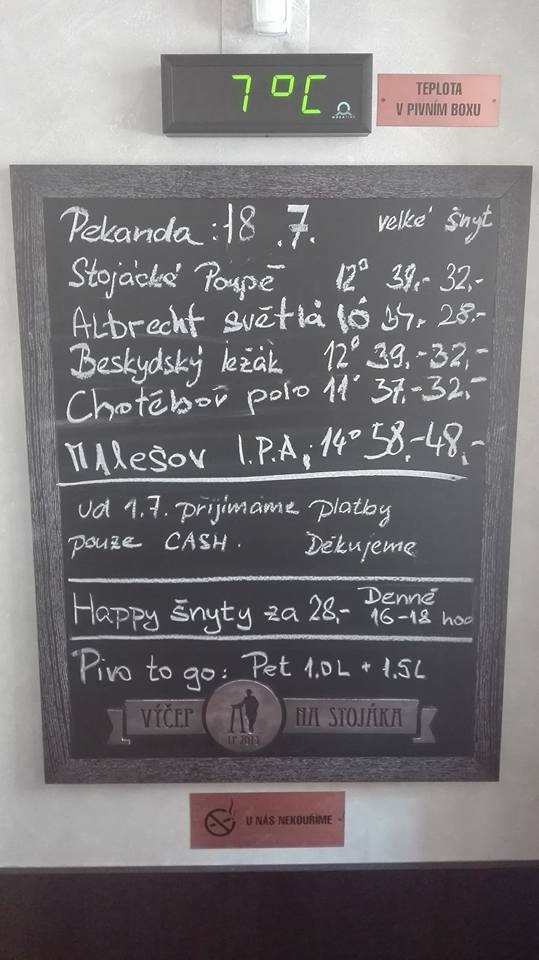 7°C
TEPLOTA
V PIVNÍM BOXU
Pekanda: 18.7. velké šnyt
Stojácké Poupě 12° 39,- 32,-
Albrecht světlá 10 37,- 28.-
Beskydský ležák 12° 39.- 32,-
Chotěboř polo 11° 37.- 32.-
Malešov I.P.A. 14° 58.- 48,-
Od 1.7. přijímáme platby
pouze CASH. Děkujeme
Happy šnyty za 28,- Denně
16-18 hod
Pivo to go: Pet 1.0L + 1.5L
VÝČEP NA STOJÁKA
EP 2013
U NÁS NEKOUŘÍME